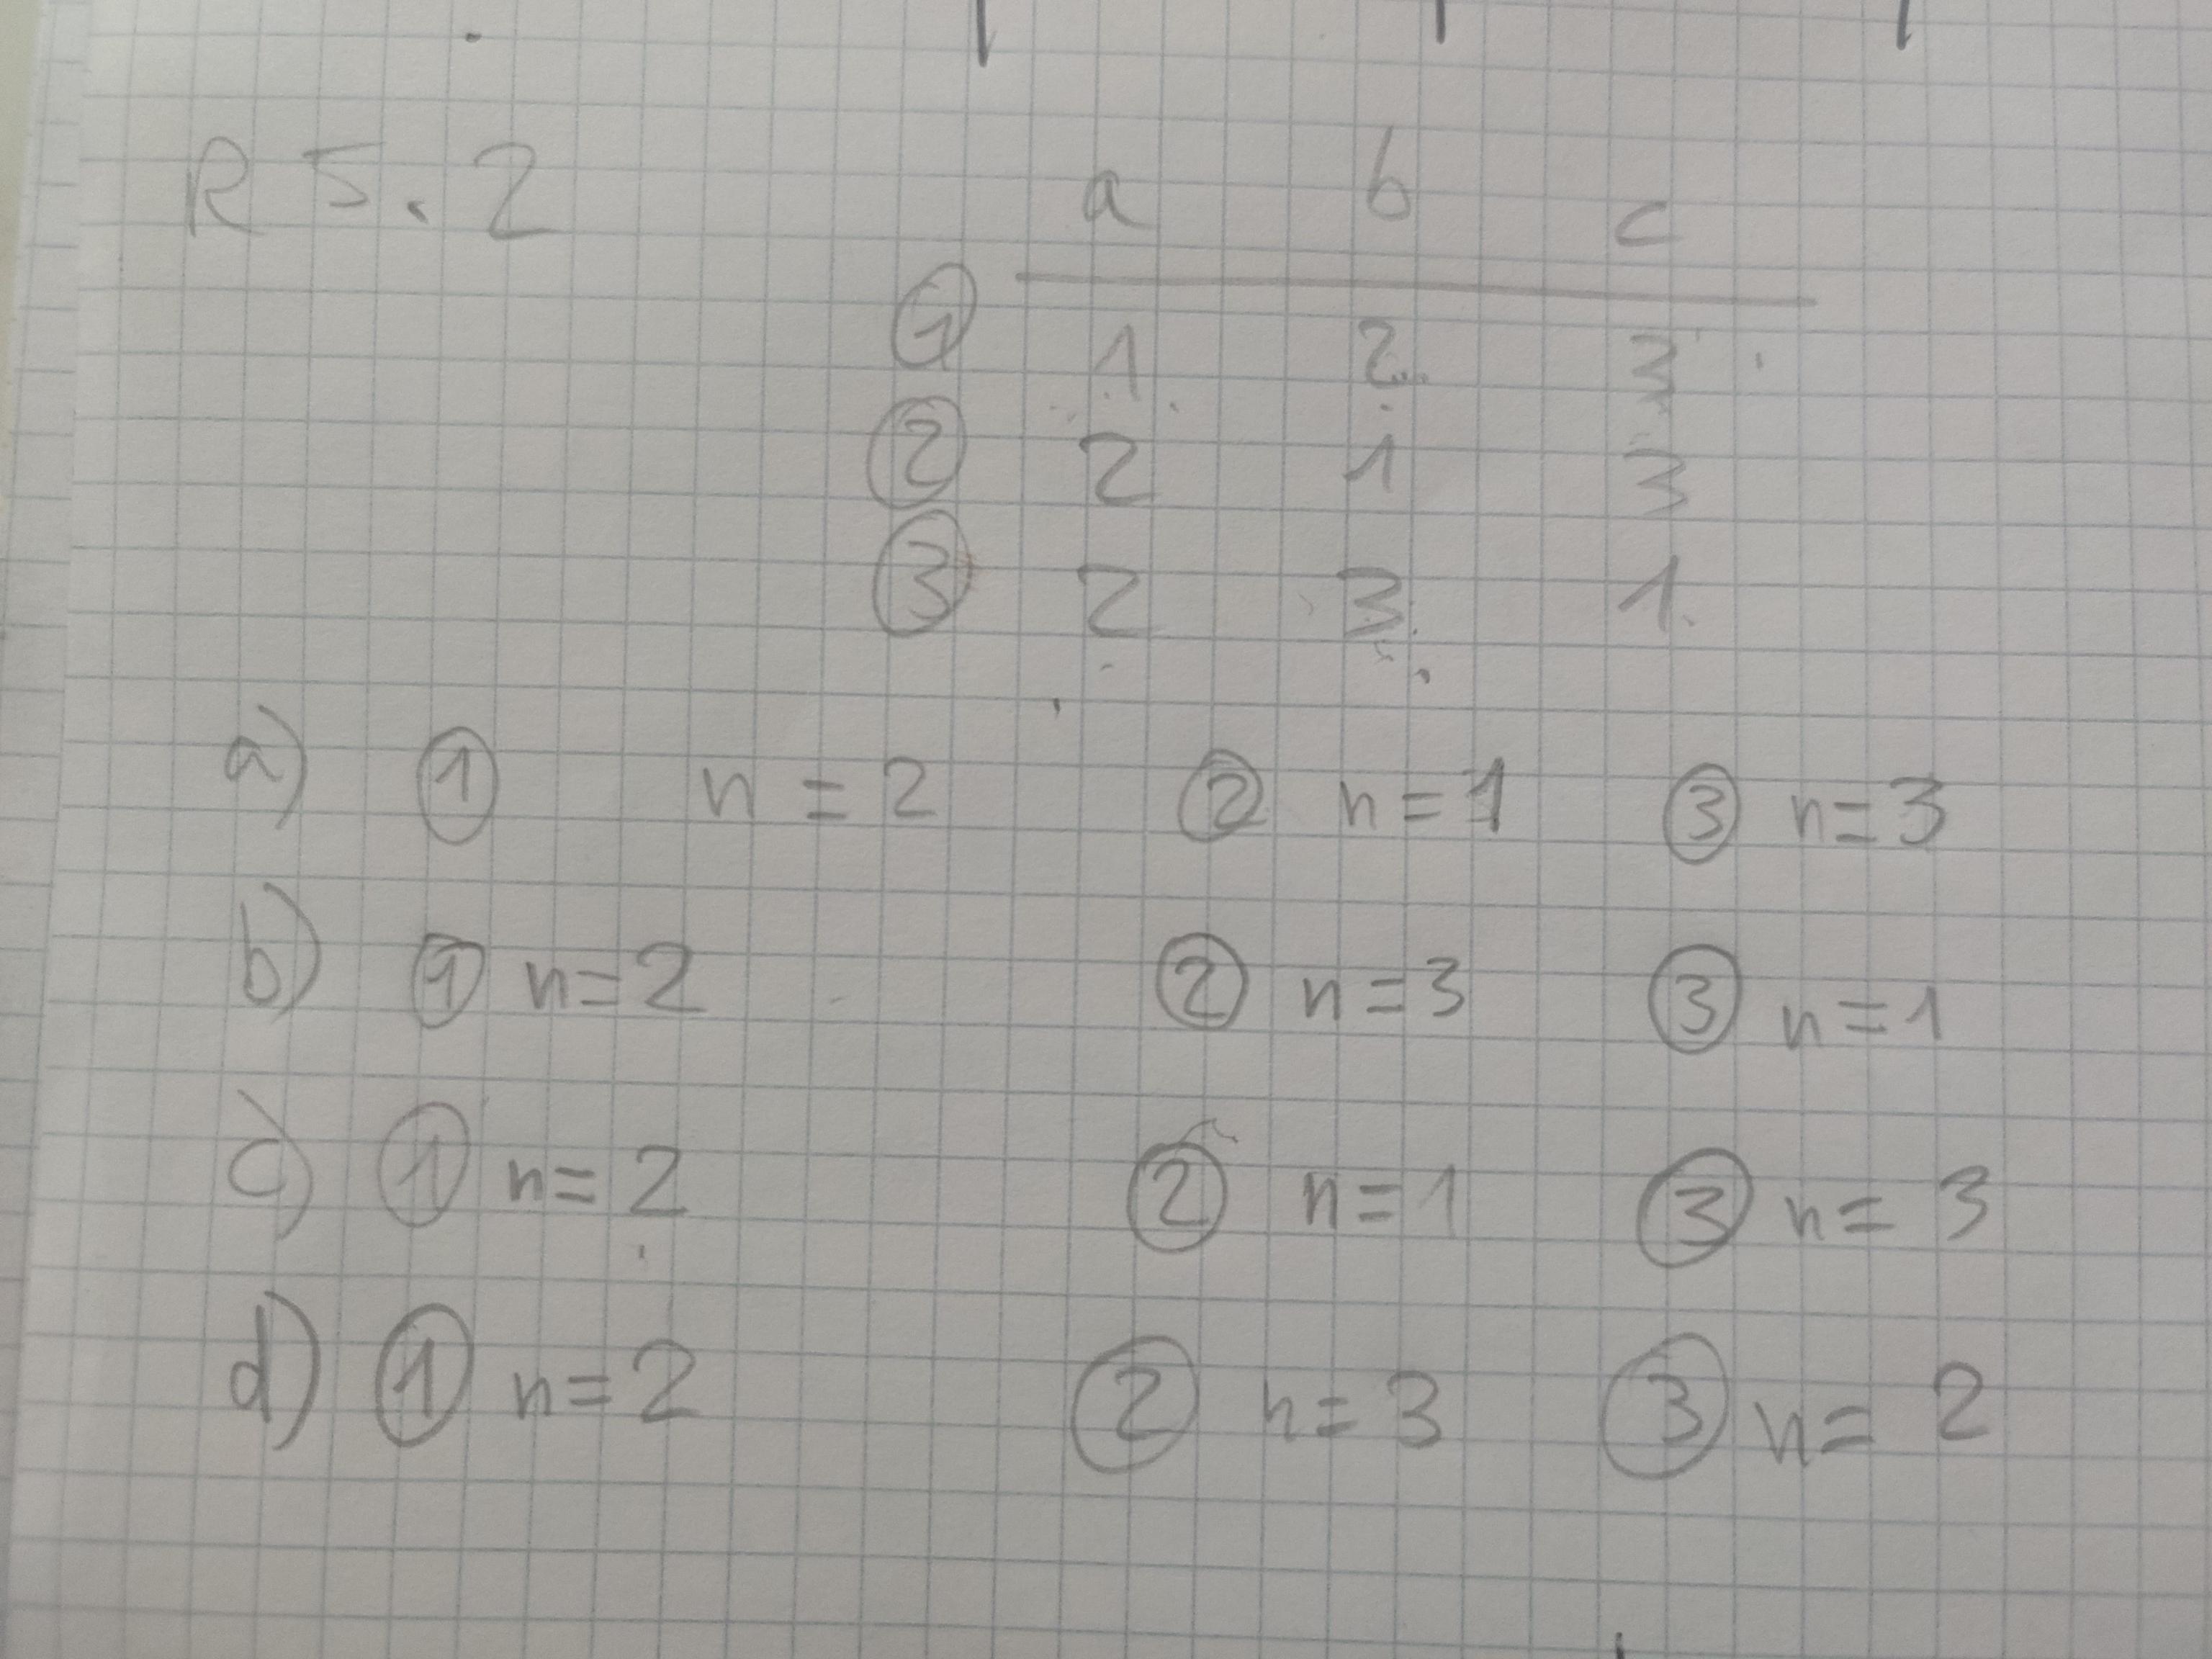 R 5.2
a b c
① 1 2 3
② 2 1 3
③ 2 3 1
a) ① n = 2 ② n = 1 ③ n = 3
b) ① n = 2 ② n = 3 ③ n = 1
c) ① n = 2 ② n = 1 ③ n = 3
d) ① n = 2 ② n = 3 ③ n = 2